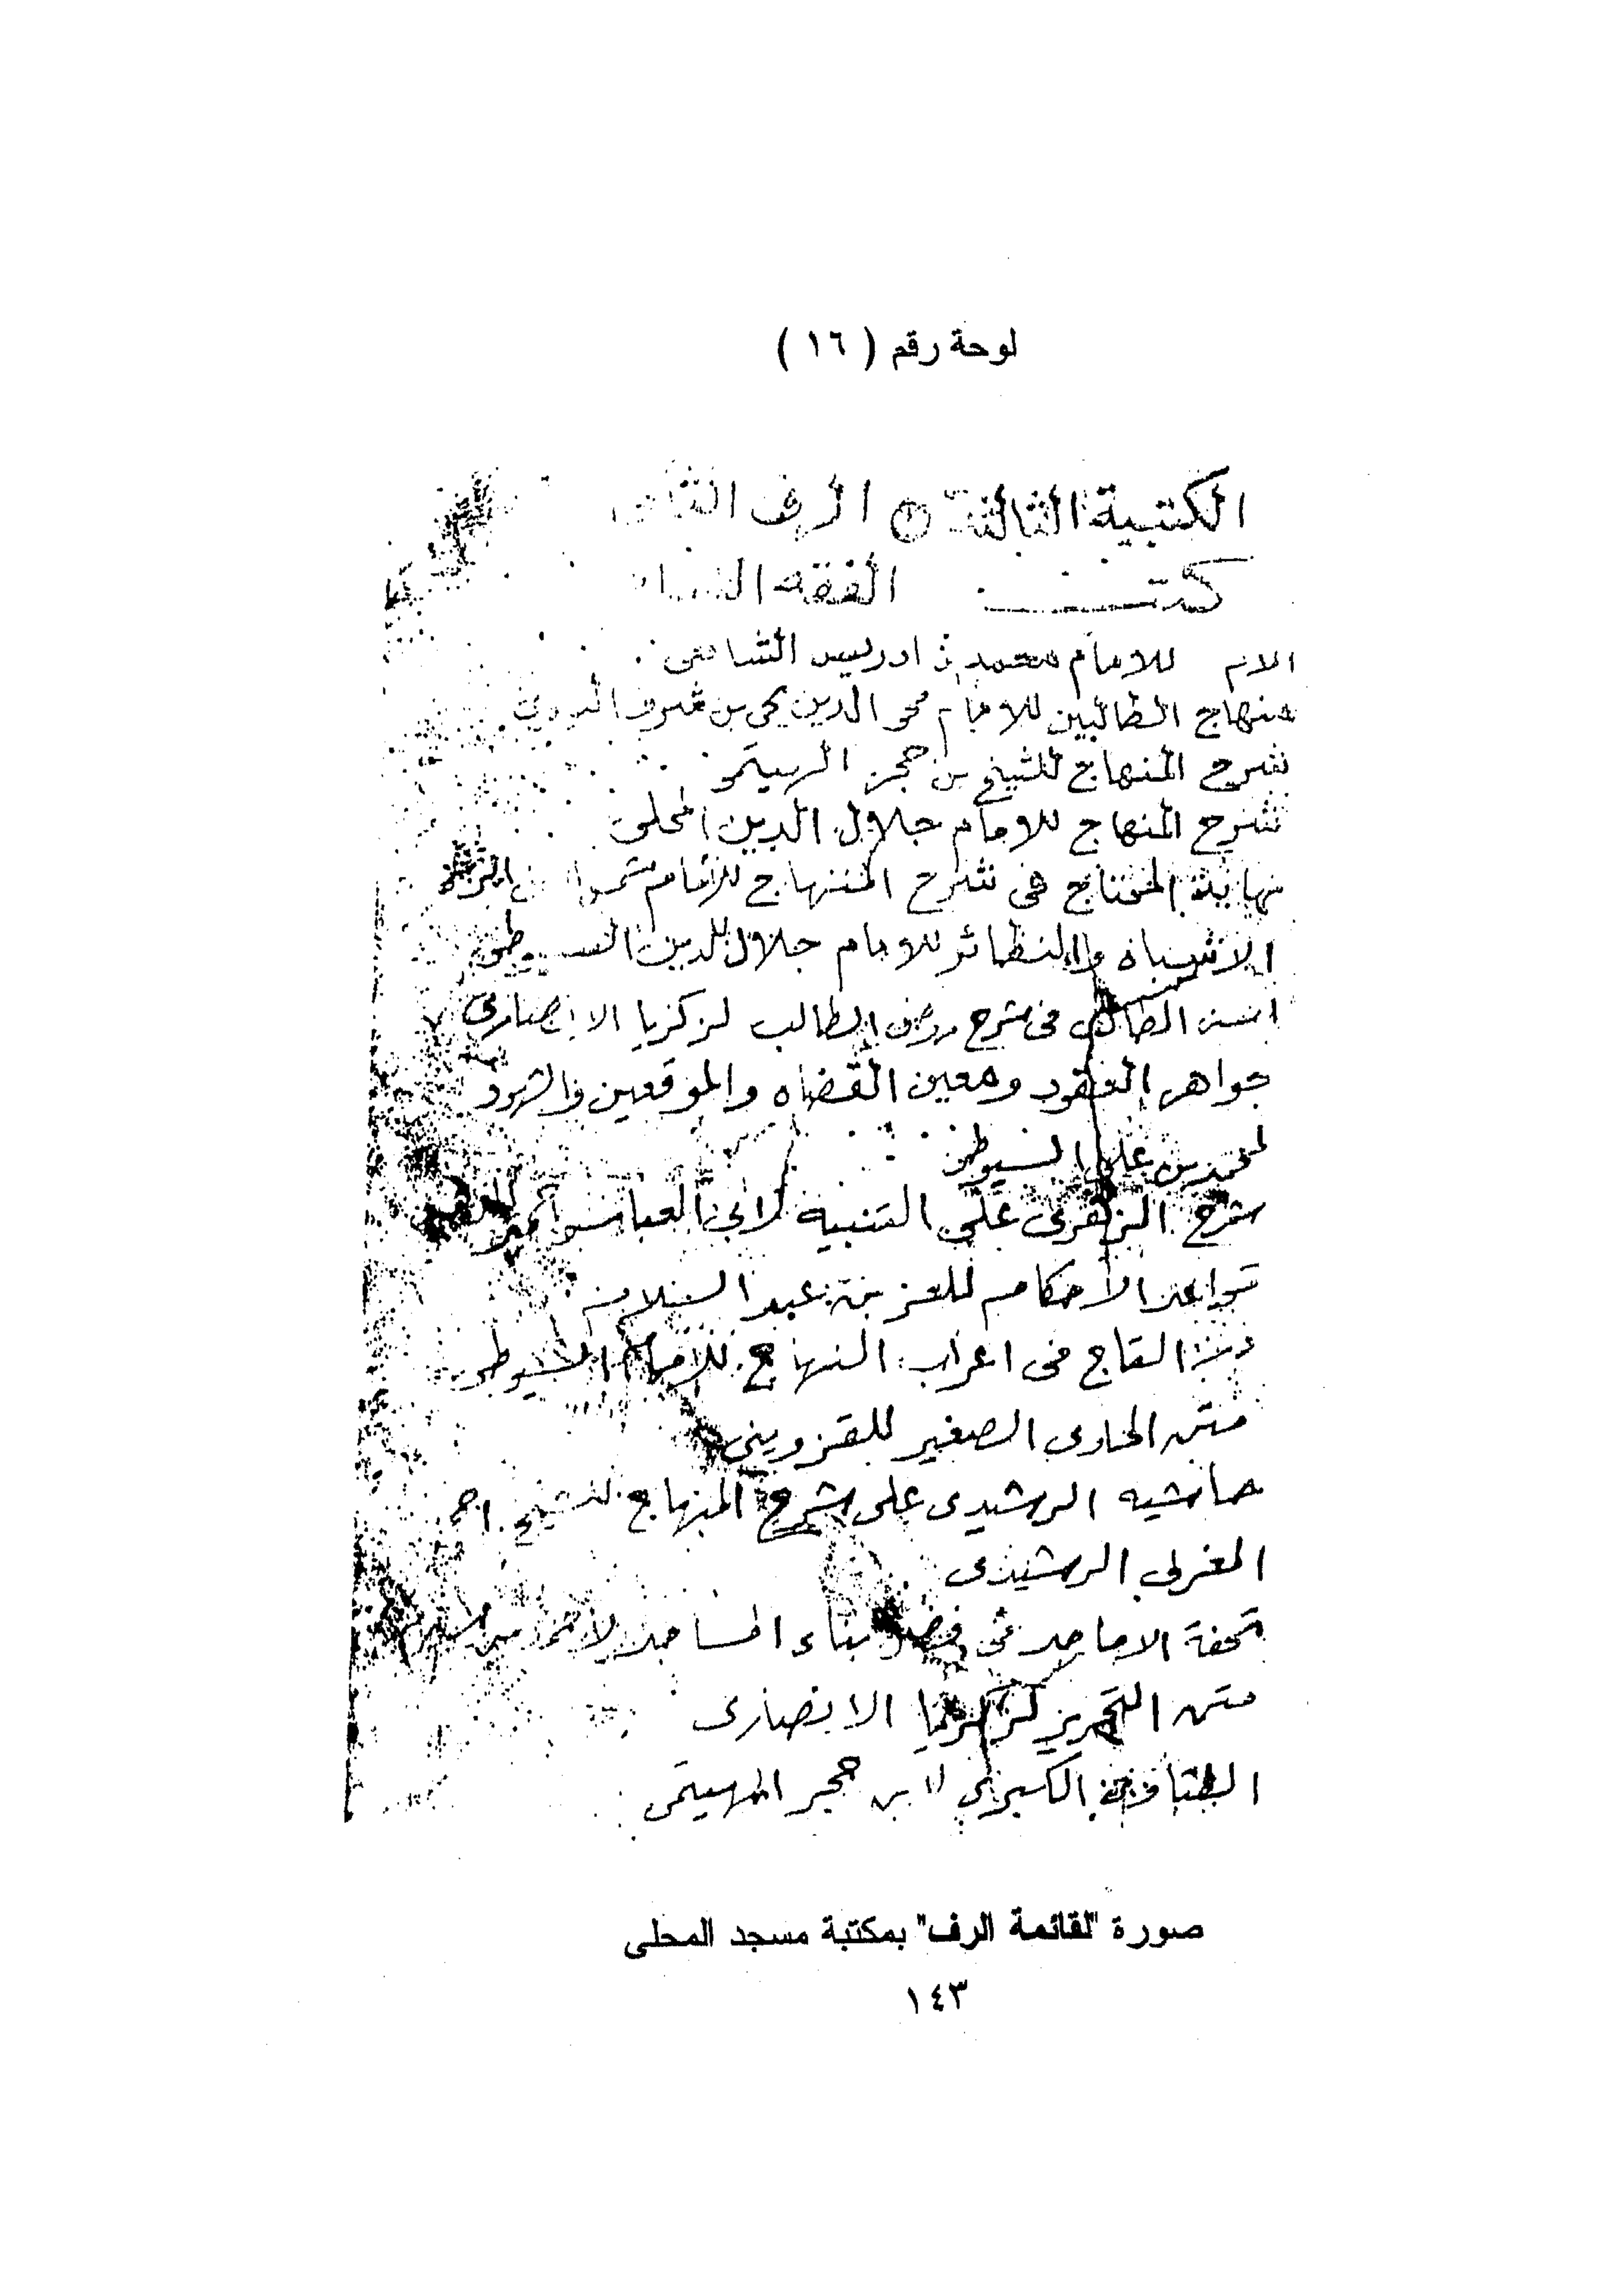 لوحة رقم ( ١٦ )
الكتبية الثالثة الرف
كتب الفقه
الام للامام محمد بن ادريس الشافعى
منهاج الطالبين للامام محى الدين يحى بن شرف النووى
شرح المنهاج للشيخ بن حجر الهيتمى
شرح المنهاج للامام جلال الدين المحلى
نهاية المحتاج فى شرح المنهاج للامام
الاشباه والنظائر للامام جلال الدين السيوطى
اسنى المطالب فى شرح روض الطالب لزكريا الانصارى
جواهر العقود ومعين القضاه والموقعين والشهود
لمحمد بن على السيوطى
شرح على التنبيه لابى العباس احمد
قواعد الاحكام للعز بن عبد السلام
التاج فى اعراب المنهاج للامام السيوطى
متن الحاوى الصغير للقزوينى
حاشيه الرشيدى على شرح المنهاج للشيخ احمد
المغربى الرشيدى
تحفة الاماجد فى فضل بناء المساجد لاحمد بن
متن التحرير لزكريا الانصارى
الكبرى لابن حجر الهيتمى
صورة "لقائمة الرف" بمكتبة مسجد المحلى
١٤٣